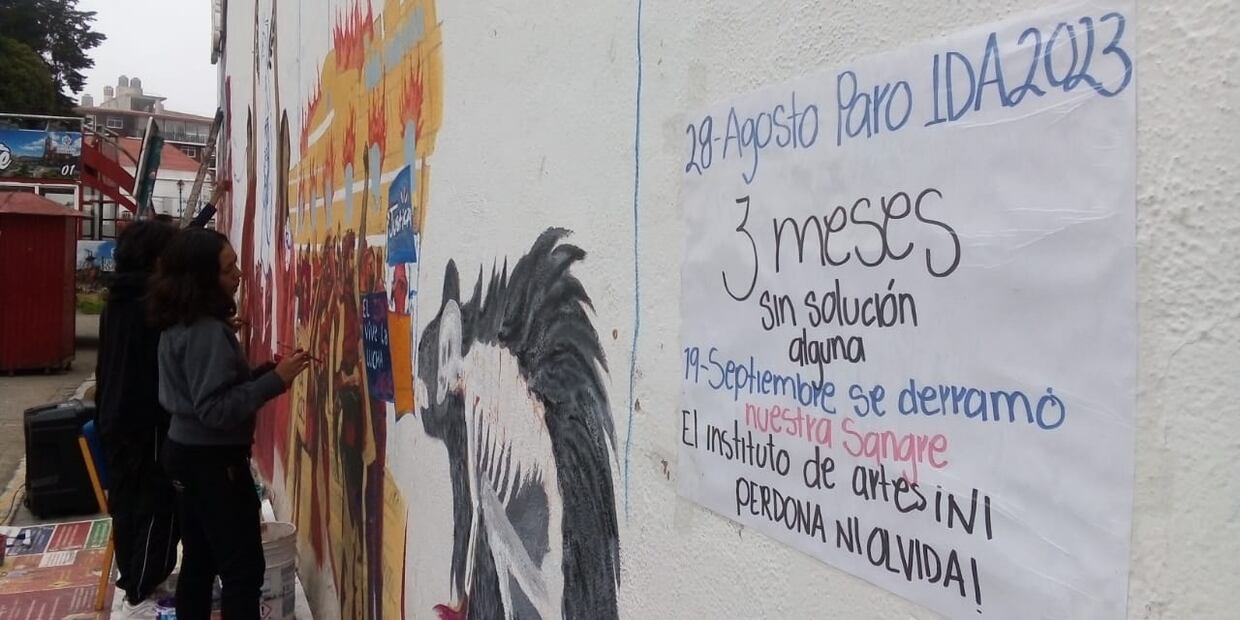 28-Agosto Paro IDA2023
3 meses
sin solución
alguna
19-Septiembre se derramó
nuestra Sangre
El instituto de artes ¡NI
PERDONA NI OLVIDA!
EL
VIVE LA
LUCHA
01